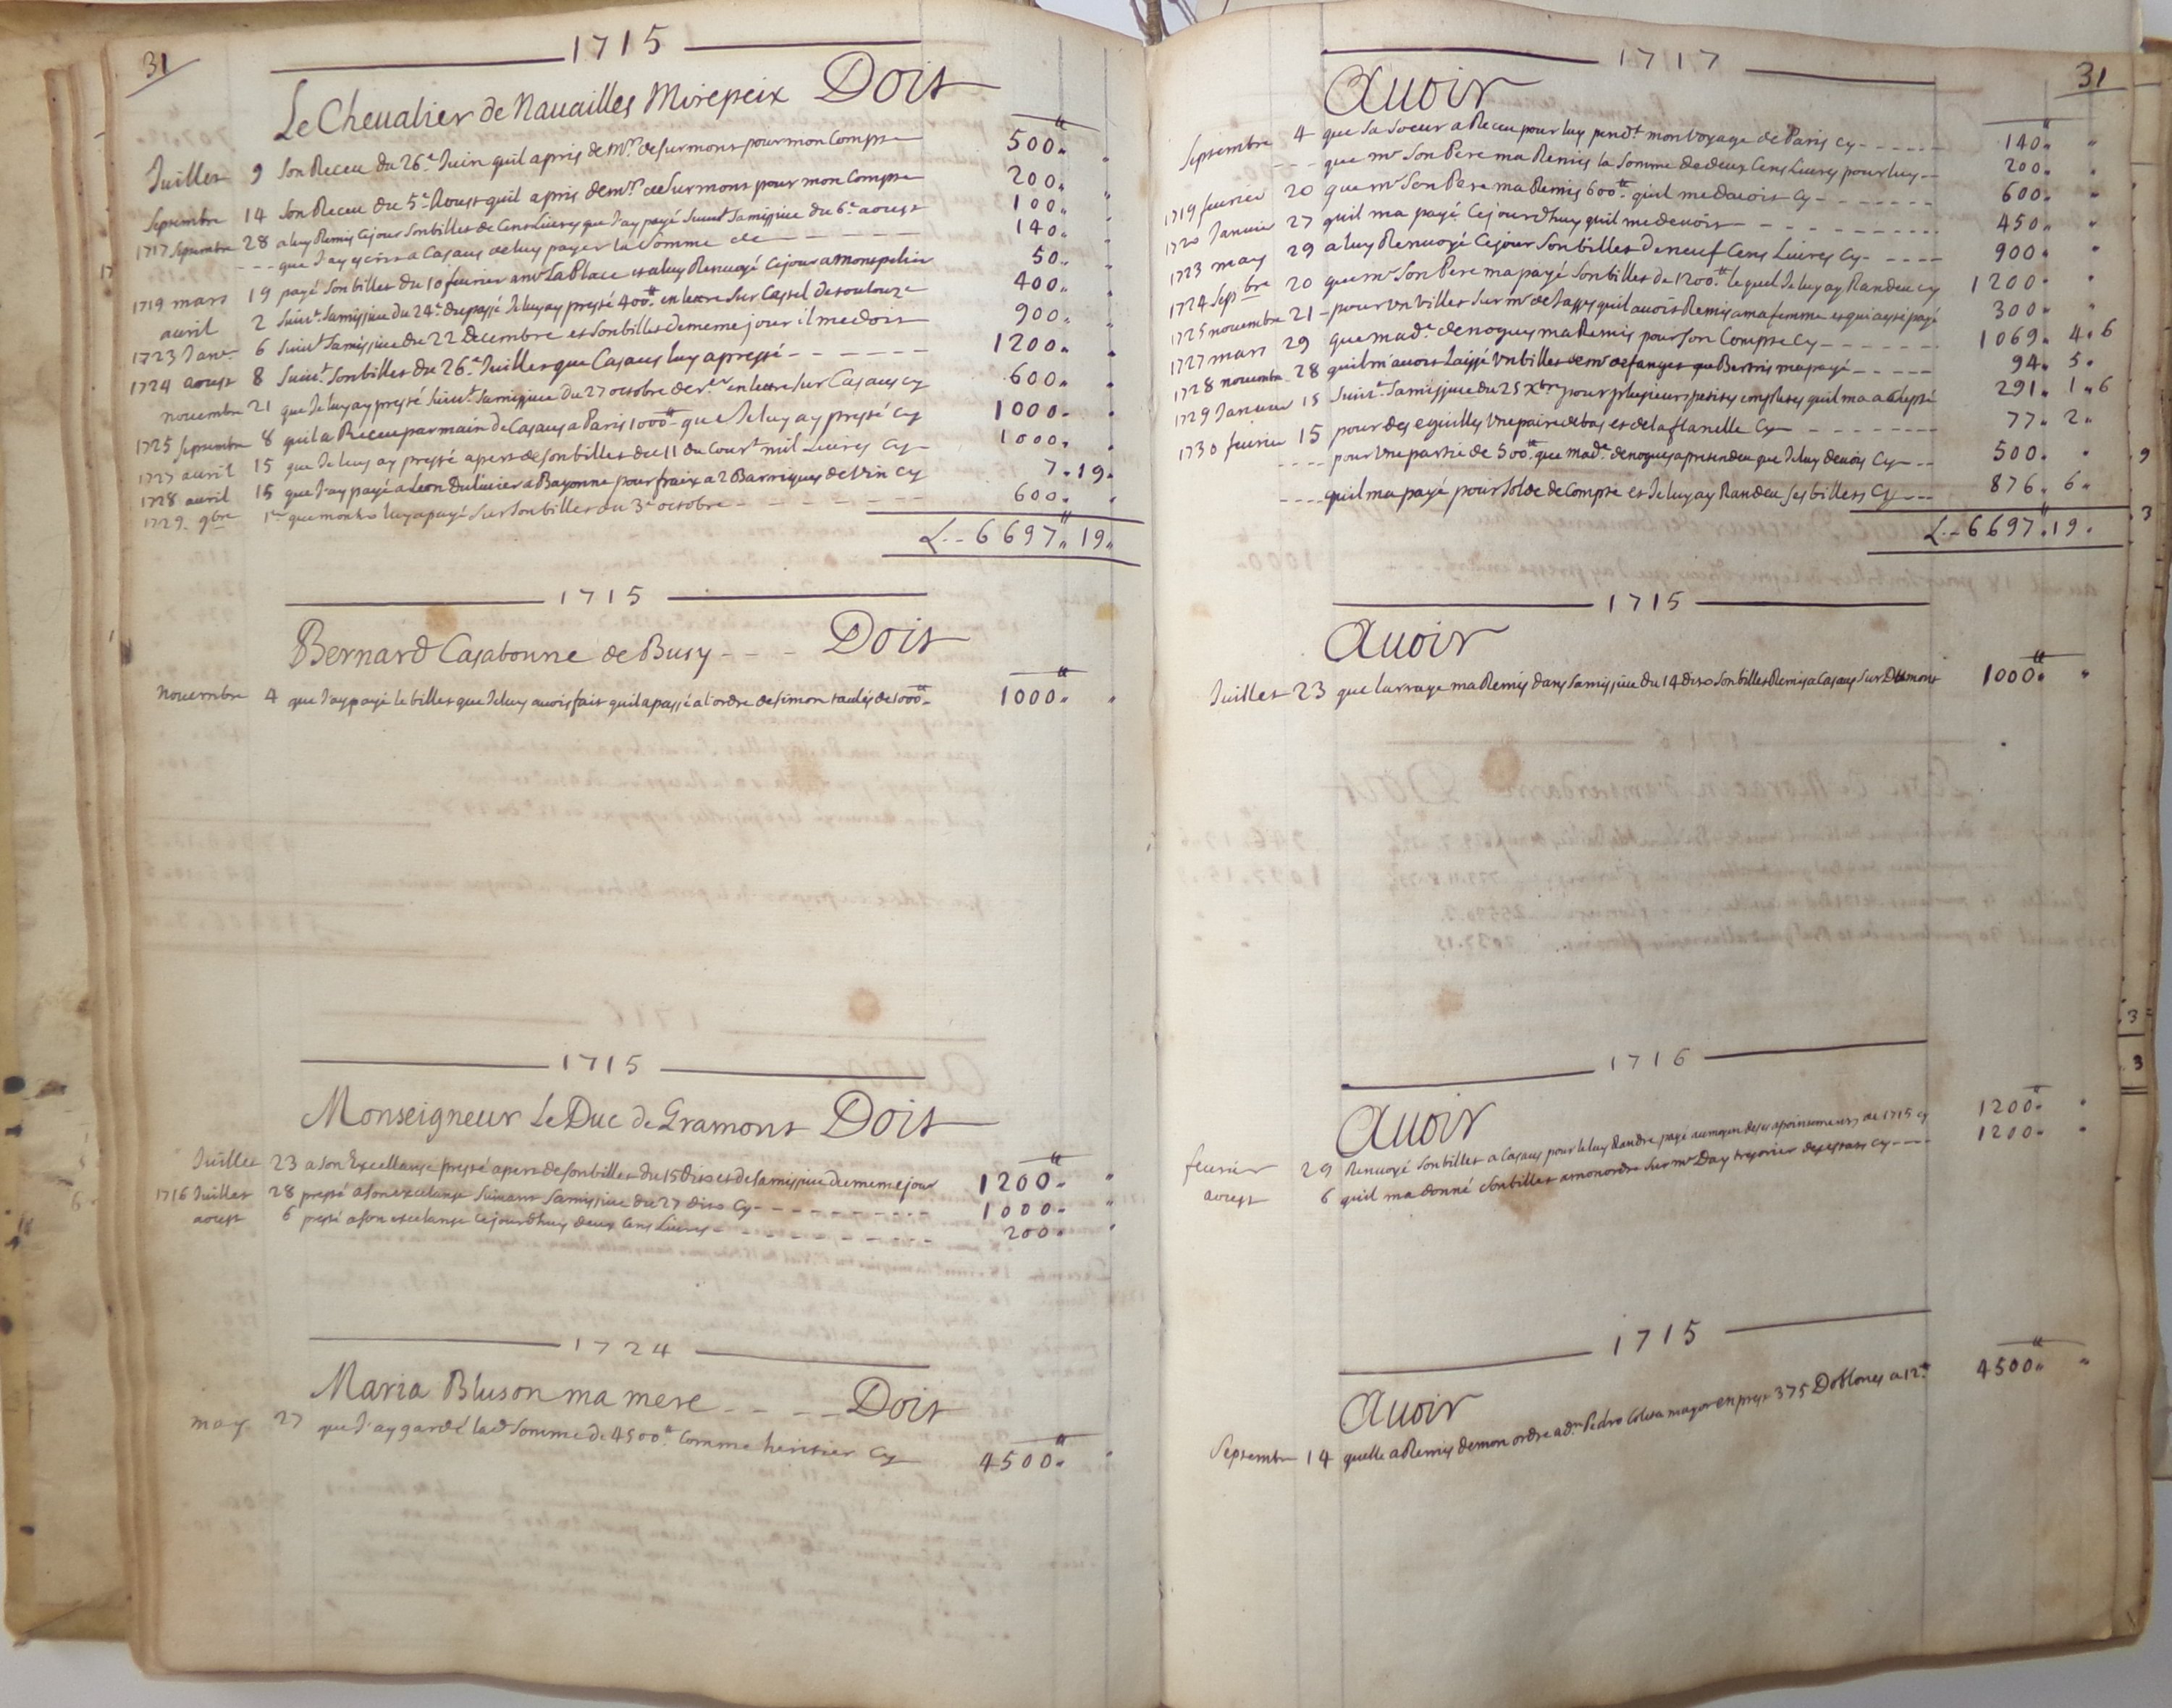 31
1715
Le Chevalier de Navailles Mirepeix Doit
Juillet 9 Son Receu du 26.e Juin quil a pris de Mr. de surmont pour mon Compte 500 "
Septembre 14 Son Receu du 5.e Aoust quil a pris de mr. de Surmont pour mon Compte 200 "
1717 Septembre 28 a luy Remis Ce jour Son billet de Cent Livres que J'ay payé Suivt Samissive du 6.e aoust 100 "
--- que J'ay ecrit a Casaus de luy payer la Somme de 140 "
1719 mars 19 payé Son billet du 10 fevrier a mr La Place et a luy Renvoyé Ce jour a Monpelier 50 "
avril 2 Suivt. Samissive du 24.e du passé Je luy ay presté 400 ₶ en lettre Sur Cassel de toulouze 400 "
1723 Janr. 6 Suivt Samissive du 22 Decembre et Son billet de meme jour il me doit 900 "
1724 aoust 8 Suivt. Son billet du 26.e Juillet que Casaus luy a presté 1200 "
novembre 21 que Je luy ay presté Suivt. Samissive du 27 octobre der.er en lettre Sur Casaus cy 600 "
1725 Septembre 8 quil a Receu par main de Casaus a Paris 1000 ₶ que Je luy ay presté Cy 1000 "
1727 avril 15 que Je luy ay presté apert de Son billet du 11 du Court mil Livres Cy 1000 "
1728 avril 15 que J'ay payé a Leon Dulivier a Bayonne pour fraix a 2 Barriques de Vin Cy 7 " 19 "
1729 9bre 1er que luy a payé Sur Son billet du 3.e octobre 600 "
L -- 6697 " 19 "
1715
Bernard Casabonne de Busy --- Doit
novembre 4 que J'ay payé le billet que Je luy avois fait quil a passé a l'ordre de Simon taulés de 1000 ₶ 1000 "
1715
Monseigneur Le Duc de Gramont Doit
Juillet 23 a Son Excellance presté apert de Son billet du 15 Dito et de Samissive du meme jour 1200 "
1716 Juillet 28 presté a Son excelance Suivant Samissive du 27 dito Cy 1000 "
aoust 6 presté a Son excelance Ce jourdhuy deux Cens Livres 200 "
1724
Maria Bluson ma mere ---- Doit
may 27 que J'ay gardé lad Somme de 4500 ₶ Comme heritier Cy 4500 "
1717
31
Avoir
Septembre 4 que Sa Soeur a Receu pour luy pendt. mon Voyage de Paris cy 140 "
--- que mr Son Pere ma Remis la Somme de deux Cens Livres pour luy 200 "
1719 fevrier 20 que mr Son Pere ma Remis 600 ₶ quil me devoit Cy 600 "
1720 Janvier 27 quil ma payé Ce jourdhuy quil me devoit 450 "
1723 may 29 a luy Renvoyé Ce jour Son billet de neuf Cens Livres Cy 900 "
1724 Sepbre 20 que mr Son Pere ma payé Son billet de 1200 ₶ le quel Je luy ay Randeu cy 1200 "
1725 novembre 21 pour Un billet Sur mr de Jassy quil avoit Remis a ma femme et qui a esté payé 300 "
1727 mars 29 que made. de nogues ma Remis pour Son Compte Cy 1069 " 4 " 6
1728 novembre 28 quil m'avoit Laissé Un billet de mr de fanget que Bertris ma payé 94 " 5 "
1729 Janvier 15 Suivt. Samissive du 25 Xbre pour plusieurs petites emplettes quil ma achepté 291 " 1 " 6
1730 fevrier 15 pour des eguilles Une paire de bas et de la flanelle Cy 77 " 2 "
---- pour Une partie de 500 ₶ que made. de nogues a pretendeu que Je luy devois Cy 500 "
---- quil ma payé pour Solde de Compte et Je luy ay Randeu Ses billets Cy 876 " 6 "
L -- 6697 " 19 "
1715
Avoir
Juillet 23 que Larraye ma Remis dans Samissive du 14 dito Son billet Remis a Casaus Sur Dumont 1000 "
1716
Avoir
fevrier 29 Renvoyé Son billet a Casaus pour le luy Randre payé au moyen de Ses apointements de 1715 cy 1200 "
aoust 6 quil ma donné Son billet a mon ordre Sur mr Day tresorier des estats Cy 1200 "
1715
Avoir
Septembre 14 quelle a Remis de mon ordre a dn Pedro Colesa mayor en prest 375 Doblones a 12 ₶ 4500 "